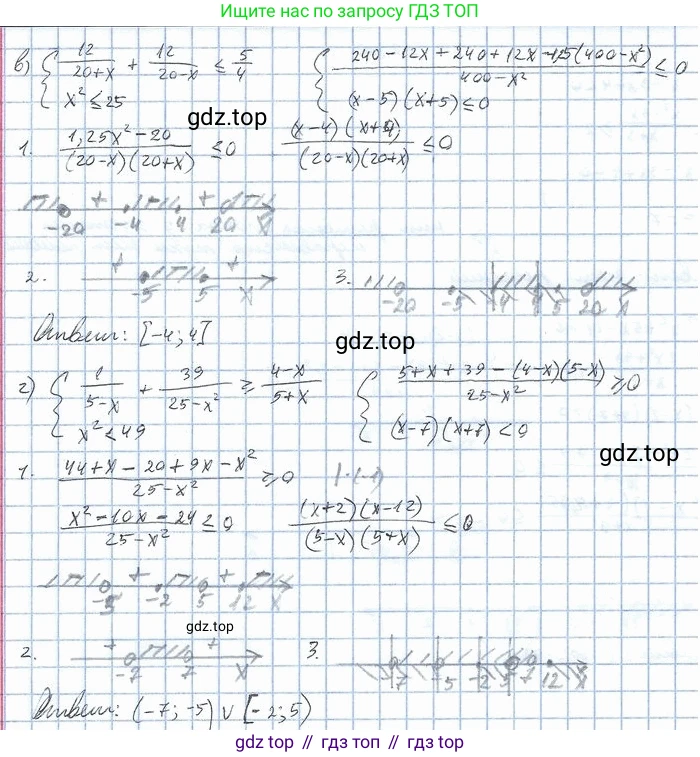 Ищите по запросу ГДЗ ТОП
в) { 12/(20+x) + 12/(20-x) ≤ 5/4
x² ≤ 25
{ (240 - 12x + 240 + 12x - 1,25(400 - x²))/(400 - x²) ≤ 0
(x-5)(x+5) ≤ 0
gdz.top
1. (1,25x² - 20)/((20-x)(20+x)) ≤ 0 ((x-4)(x+4))/((20-x)(20+x)) ≤ 0
+ + -20 -4 4 20 x
2. + + -5 5 x 3. -20 -5 -4 4 5 20 x
Ответ: [-4; 4]
gdz.top
г) { 1/(5-x) + 39/(25-x²) ≥ (4-x)/(5+x)
x² < 49
{ (5+x+39-(4-x)(5-x))/(25-x²) ≥ 0
(x-7)(x+7) < 0
gdz.top
1. (44+x-20+9x-x²)/(25-x²) ≥ 0 |·(-1)
(x²-10x-24)/(25-x²) ≤ 0 ((x+2)(x-12))/((5-x)(5+x)) ≤ 0
+ + -5 -2 5 12 x
gdz.top
2. + + -7 7 x 3. -7 -5 -2 5 7 12 x
Ответ: (-7; -5) ∪ [-2; 5)
gdz.top // гдз.топ // gdz.top